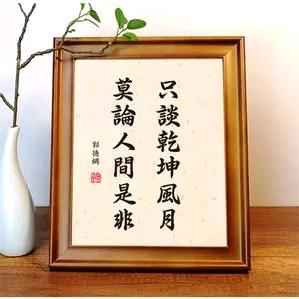 只談乾坤風月
莫論人間是非
郭德綱